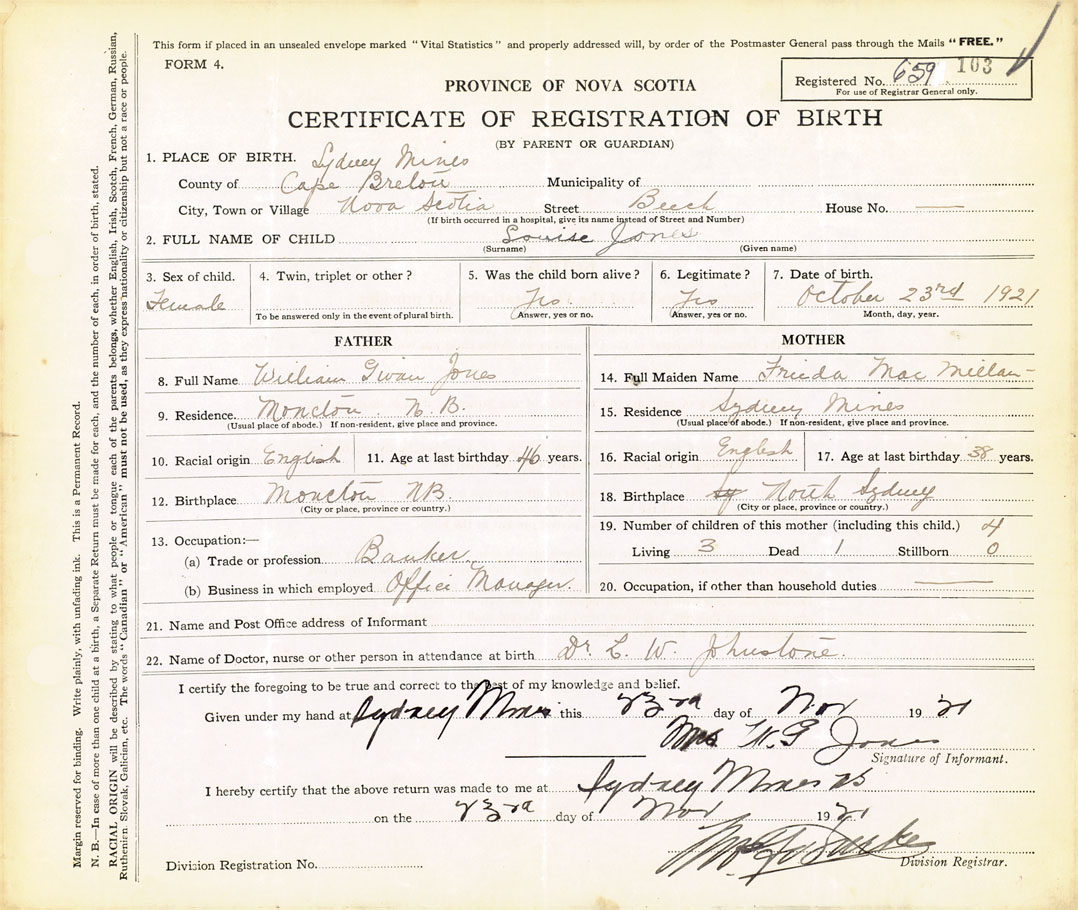 This form if placed in an unsealed envelope marked "Vital Statistics" and properly addressed will, by order of the Postmaster General pass through the Mails "FREE."
FORM 4.
Registered No. 659 103
For use of Registrar General only.
PROVINCE OF NOVA SCOTIA
CERTIFICATE OF REGISTRATION OF BIRTH
(BY PARENT OR GUARDIAN)
1. PLACE OF BIRTH. Sydney Mines
County of Cape Breton Municipality of
City, Town or Village Nova Scotia Street Beech House No. —
(If birth occurred in a hospital, give its name instead of Street and Number)
2. FULL NAME OF CHILD Louise Jones
(Surname) (Given name)
3. Sex of child. 4. Twin, triplet or other? 5. Was the child born alive? 6. Legitimate? 7. Date of birth.
Female Yes. Yes October 23rd 1921
To be answered only in the event of plural birth. Answer, yes or no. Answer, yes or no. Month, day, year.
FATHER
8. Full Name William Jones
9. Residence. Moncton. N.B.
(Usual place of abode.) If non-resident, give place and province.
10. Racial origin English 11. Age at last birthday 46 years.
12. Birthplace Moncton NB.
(City or place, province or country.)
13. Occupation:—
(a) Trade or profession Banker
(b) Business in which employed Office Manager.
MOTHER
14. Full Maiden Name Frieda Mac Millan
15. Residence Sydney Mines
(Usual place of abode.) If non-resident, give place and province.
16. Racial origin English 17. Age at last birthday 38 years.
18. Birthplace Sy North Sydney
(City or place, province or country.)
19. Number of children of this mother (including this child.) 4
Living 3 Dead 1 Stillborn 0
20. Occupation, if other than household duties —
21. Name and Post Office address of Informant
22. Name of Doctor, nurse or other person in attendance at birth Dr. L. W. Johnstone.
I certify the foregoing to be true and correct to the best of my knowledge and belief.
Given under my hand at Sydney Mines this 23rd day of Nov 19 21
Mrs W. G Jones
Signature of Informant.
I hereby certify that the above return was made to me at Sydney Mines NS
on the 23rd day of Nov 19 21
Division Registrar.
Division Registration No.
Margin reserved for binding. Write plainly, with unfading ink. This is a Permanent Record.
N. B.—In case of more than one child at a birth, a Separate Return must be made for each, and the number of each, in order of birth, stated.
RACIAL ORIGIN will be described by stating to what people or tongue each of the parents belongs, whether English, Irish, Scotch, French, German, Russian,
Ruthenian, Slovak, Galician, etc. The words "Canadian" or "American" must not be used, as they express nationality or citizenship but not a race or people.